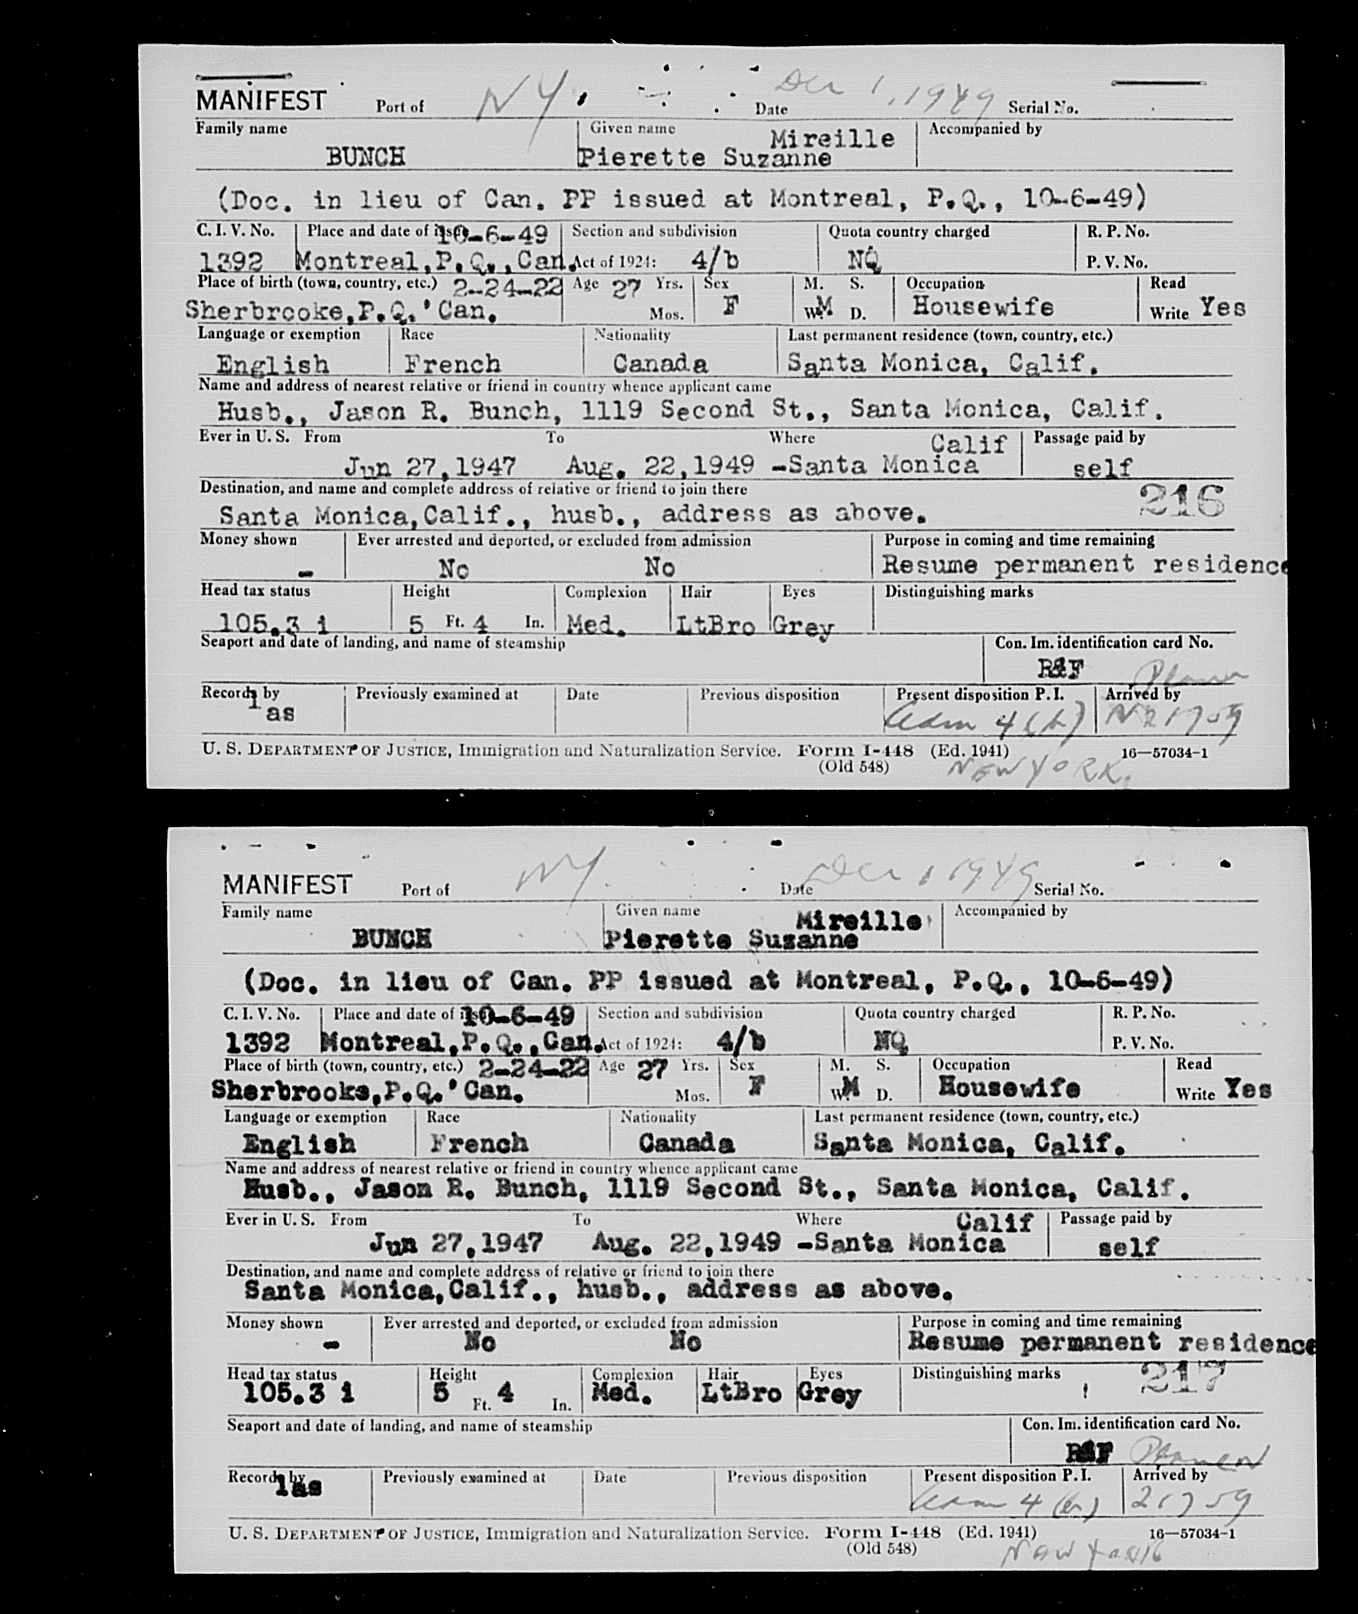 MANIFEST Port of NY. Date Dec 1, 1949 Serial No.
Family name Given name Mireille Accompanied by
BUNCH Pierette Suzanne
(Doc. in lieu of Can. PP issued at Montreal, P.Q., 10-6-49)
C. I. V. No. Place and date of iss 10-6-49 Section and subdivision Quota country charged R. P. No.
1392 Montreal,P.Q.,Can. Act of 1924: 4/b NQ P. V. No.
Place of birth (town, country, etc.) 2-24-22 Age 27 Yrs. Sex M. S. Occupation Read
Sherbrooke,P.Q.'Can. Mos. F W M D. Housewife Write Yes
Language or exemption Race Nationality Last permanent residence (town, country, etc.)
English French Canada Santa Monica, Calif.
Name and address of nearest relative or friend in country whence applicant came
Husb., Jason R. Bunch, 1119 Second St., Santa Monica, Calif.
Ever in U. S. From To Where Calif Passage paid by
Jun 27,1947 Aug. 22,1949 -Santa Monica self
Destination, and name and complete address of relative or friend to join there
216
Santa Monica,Calif., husb., address as above.
Money shown Ever arrested and deported, or excluded from admission Purpose in coming and time remaining
- No No Resume permanent residence
Head tax status Height Complexion Hair Eyes Distinguishing marks
105.3 i 5 Ft. 4 In. Med. LtBro Grey
Seaport and date of landing, and name of steamship Con. Im. identification card No.
Records by Previously examined at Date Previous disposition Present disposition P. I. Arrived by
las Adm 4(b)
U. S. DEPARTMENT OF JUSTICE, Immigration and Naturalization Service. Form I-448 (Ed. 1941) 16—57034-1
(Old 548) NEW YORK.
MANIFEST Port of NY. Date Dec 1 1949 Serial No.
Family name Given name Mireille Accompanied by
BUNCH Pierette Suzanne
(Doc. in lieu of Can. PP issued at Montreal, P.Q., 10-6-49)
C. I. V. No. Place and date of iss 10-6-49 Section and subdivision Quota country charged R. P. No.
1392 Montreal,P.Q.,Can. Act of 1924: 4/b NQ P. V. No.
Place of birth (town, country, etc.) 2-24-22 Age 27 Yrs. Sex M. S. Occupation Read
Sherbrooke,P.Q.'Can. Mos. F W M D. Housewife Write Yes
Language or exemption Race Nationality Last permanent residence (town, country, etc.)
English French Canada Santa Monica, Calif.
Name and address of nearest relative or friend in country whence applicant came
Husb., Jason R. Bunch, 1119 Second St., Santa Monica, Calif.
Ever in U. S. From To Where Calif Passage paid by
Jun 27,1947 Aug. 22,1949 -Santa Monica self
Destination, and name and complete address of relative or friend to join there
Santa Monica,Calif., husb., address as above.
Money shown Ever arrested and deported, or excluded from admission Purpose in coming and time remaining
- No No Resume permanent residence
Head tax status Height Complexion Hair Eyes Distinguishing marks 217
105.3 i 5 Ft. 4 In. Med. LtBro Grey
Seaport and date of landing, and name of steamship Con. Im. identification card No.
Records by Previously examined at Date Previous disposition Present disposition P. I. Arrived by
las Adm 4(b)
U. S. DEPARTMENT OF JUSTICE, Immigration and Naturalization Service. Form I-448 (Ed. 1941) 16—57034-1
(Old 548) New York